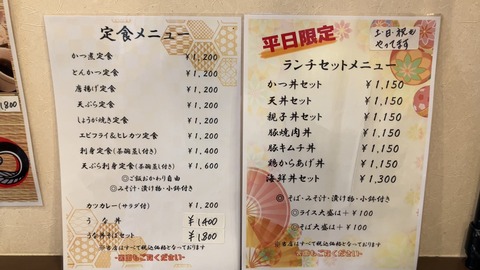 定食メニュー
かつ煮定食 ¥1,200
とんかつ定食 ¥1,200
唐揚げ定食 ¥1,200
天ぷら定食 ¥1,200
しょうが焼き定食 ¥1,200
エビフライ&ヒレカツ定食 ¥1,200
刺身定食(茶碗蒸し付き) ¥1,400
天ぷら刺身定食(茶碗蒸し付き) ¥1,600
◎ご飯おかわり自由
◎みそ汁・漬け物・小鉢付き
カツカレー(サラダ付) ¥1,200
うな丼 ¥1400
うな丼そばセット ¥1800
※当店はすべて税込価格となっております
-裏面もご覧ください-
平日限定
土・日・祝も
やってます
ランチセットメニュー
かつ丼セット ¥1,150
天丼セット ¥1,150
親子丼セット ¥1,150
豚焼肉丼 ¥1,150
豚キムチ丼 ¥1,150
鶏からあげ丼 ¥1,150
海鮮丼セット ¥1,300
◎そば・みそ汁・漬け物・小鉢付き
◎ライス大盛は+¥100
◎そば大盛は+¥100
※当店はすべて税込価格となっております
-裏面もご覧ください-